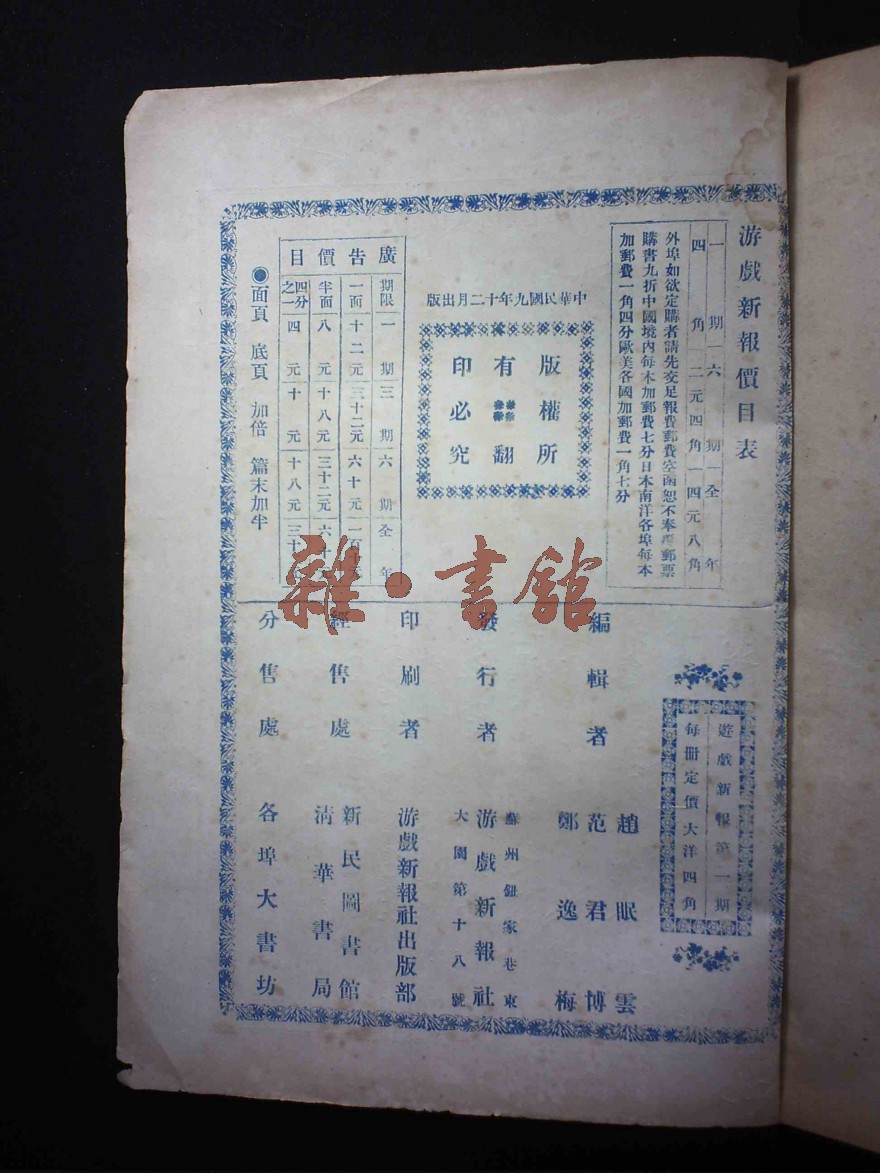 游戲新報價目表
一期 六期 全年
四角 二元四角 四元八角
外埠如欲定購者請先交足報費郵費空函恕不奉 郵票
購書九折中國境內每本加郵費七分日本南洋各埠每本
加郵費一角四分歐美各國加郵費一角七分
中華民國九年十二月出版
版權所
有翻
印必究
廣告價目
期限 一期 三期 六期 全年
一面 十二元 三十二元 六十元 一百
半面 八元 十八元 三十二元 六十
四分之一 四元 十元 十八元 三十
●面頁 底頁 加倍 篇末加半
遊戲新報第一期
每冊定價大洋四角
編輯者 趙眠雲
范君博
鄭逸梅
發行者 蘇州鈕家巷東
游戲新報社
大園第十八號
印刷者 游戲新報社出版部
經售處 新民圖書館
清華書局
分售處 各埠大書坊
雜·書館